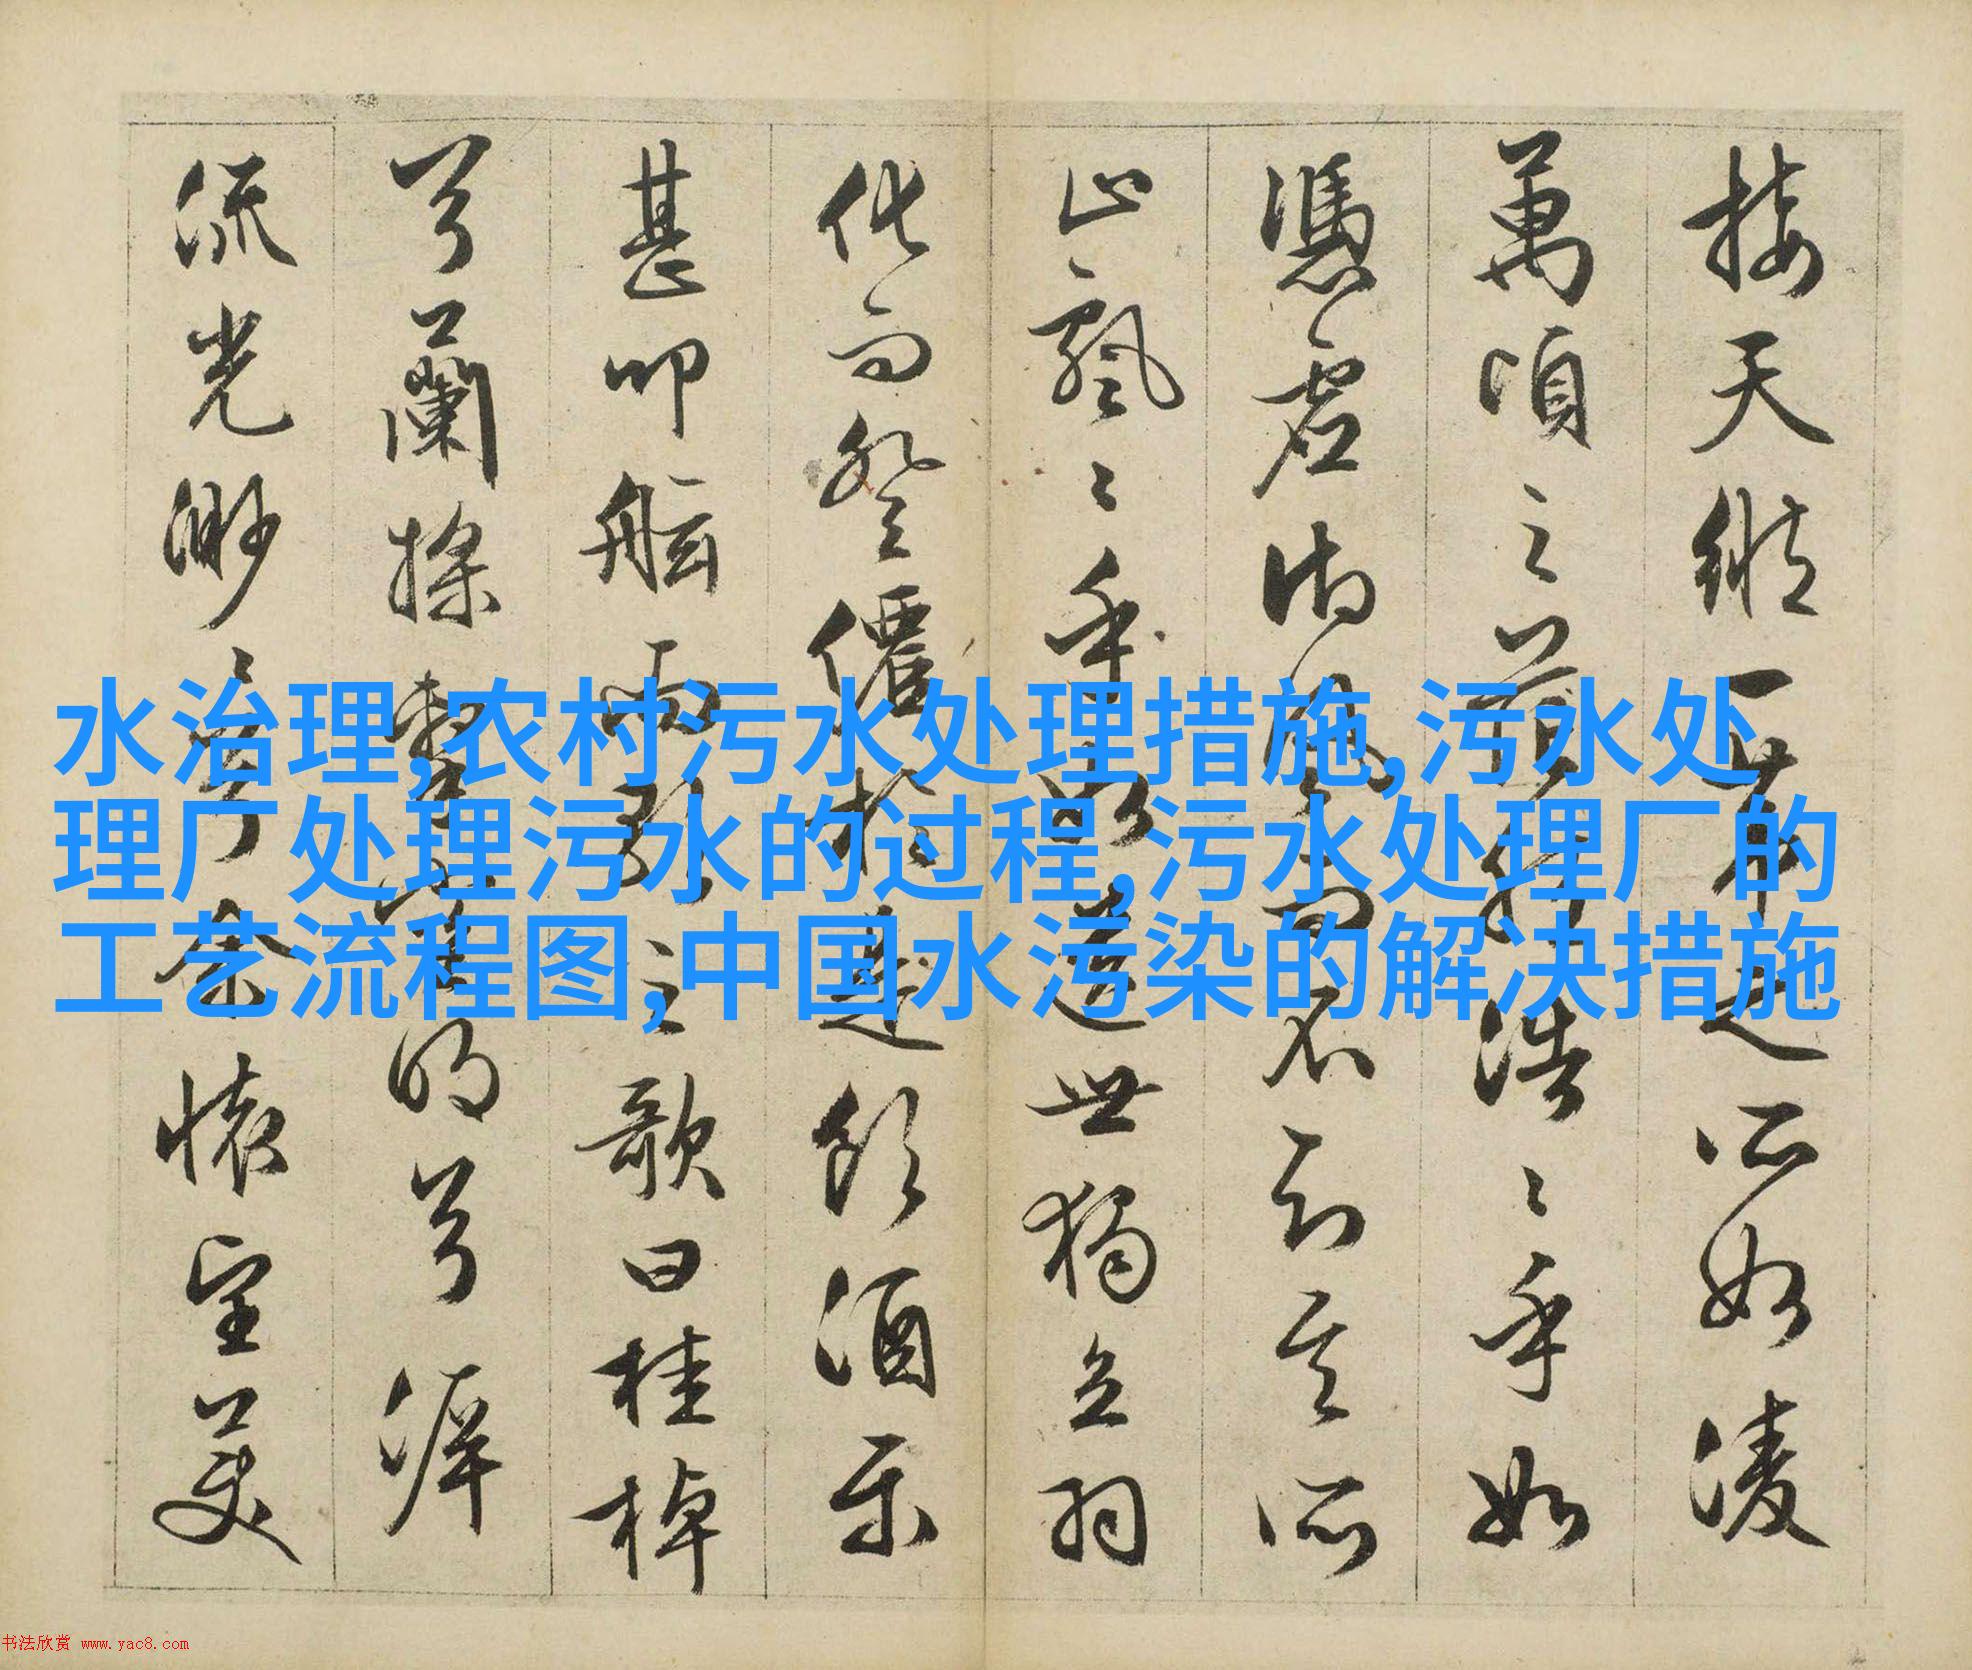 接天縱一葦之所如凌
萬頃之茫然浩〻乎如
憑虛御風而不知其所
止飄〻乎如遺世獨立羽
化而登僊於是飲酒樂
甚叩舷而歌之歌曰桂棹
兮蘭槳擊空明兮泝
流光渺〻兮余懷望美
水治理,农村污水处理措施,污水处
理厂处理污水的过程,污水处理厂的
工艺流程图,中国水污染的解决措施
书法欣赏 www.yac8.com